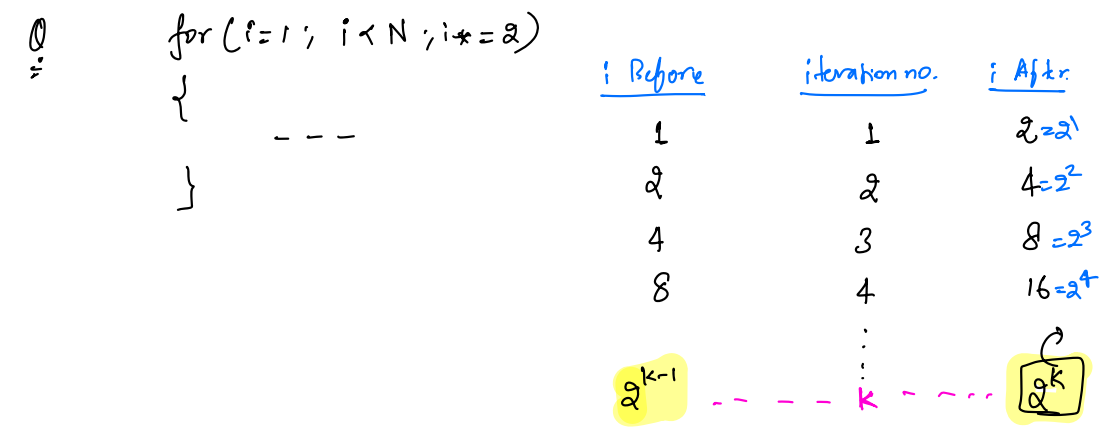 Q for (i=1; i<N; i*=2)
{
- - -
}
i Before iteration no. i Aftr.
1 1 2=2¹
2 2 4=2²
4 3 8=2³
8 4 16=2⁴
2^{k-1} - - - - k - - - - 2^k